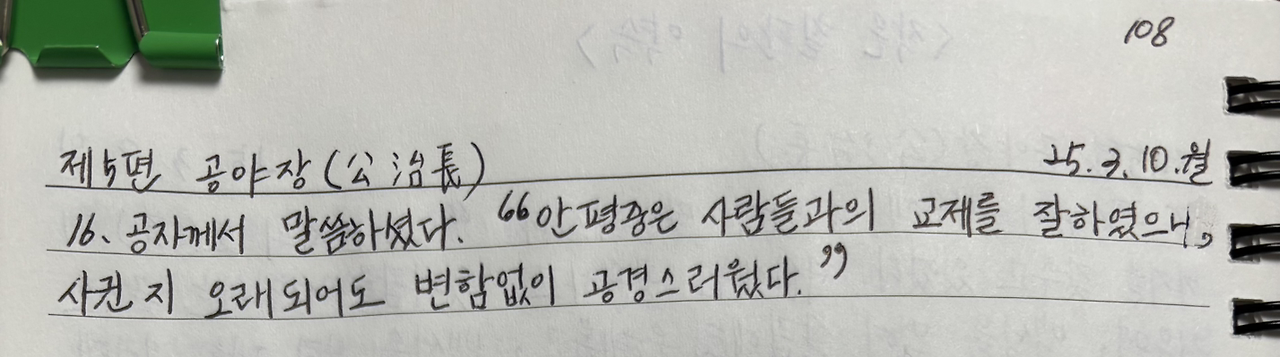 108
제5편 공야장(公治長) 25.3.10.월
16. 공자께서 말씀하셨다. "안평중은 사람들과의 교제를 잘하였으니,
사귄 지 오래되어도 변함없이 공경스러웠다."